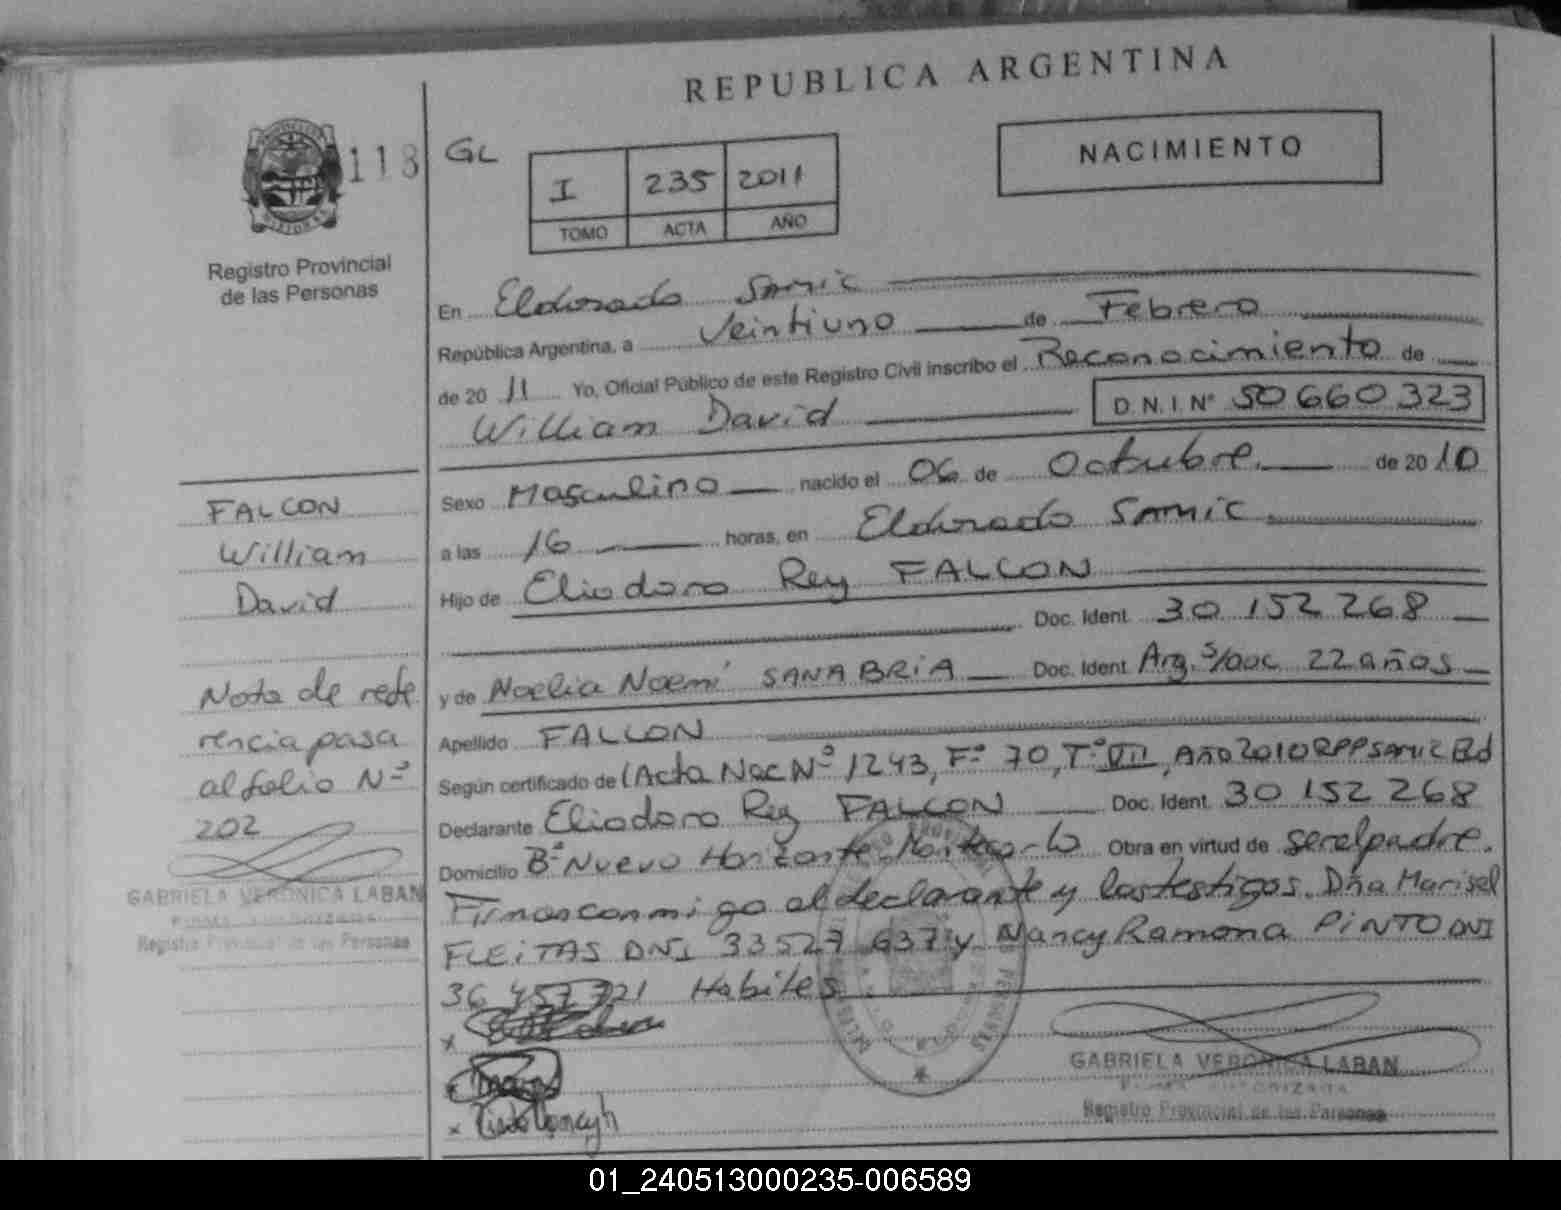 REPUBLICA ARGENTINA
NACIMIENTO
118
GL
I 235 2011
TOMO ACTA AÑO
Registro Provincial
de las Personas
En Eldorado Samic
República Argentina, a Veintiuno de Febrero
de 20 11 Yo, Oficial Público de este Registro Civil inscribo el Reconocimiento de
William David D.N.I. Nº 50 660 323
Sexo Masculino nacido el 06 de Octubre de 20 10
a las 16 horas, en Eldorado Samic
Hijo de Eliodoro Rey FALCON
Doc. Ident. 30 152 268
y de Noelia Noemí SANABRIA Doc. Ident. Arg. s/doc 22 años
Apellido FALCON
Según certificado de (Acta Nac Nº 1243, Fº 70, Tº VII, Año 2010 RPP Samic Eld
Declarante Eliodoro Rey FALCON Doc. Ident. 30 152 268
Domicilio Bº Nuevo Horizonte Montecarlo Obra en virtud de ser el padre.
Firman conmigo el declarante y los testigos Dña Marisel
FLEITAS DNI 33527 637 y Nancy Ramona PINTO DNI
36 457 721 Habiles
FALCON
William
David
Nota de refe
rencia pasa
al folio Nº
202
GABRIELA VERONICA LABAN
FIRMA AUTORIZADA
Registro Provincial de las Personas
GABRIELA VERONICA LABAN
FIRMA AUTORIZADA
Registro Provincial de las Personas
01_240513000235-006589